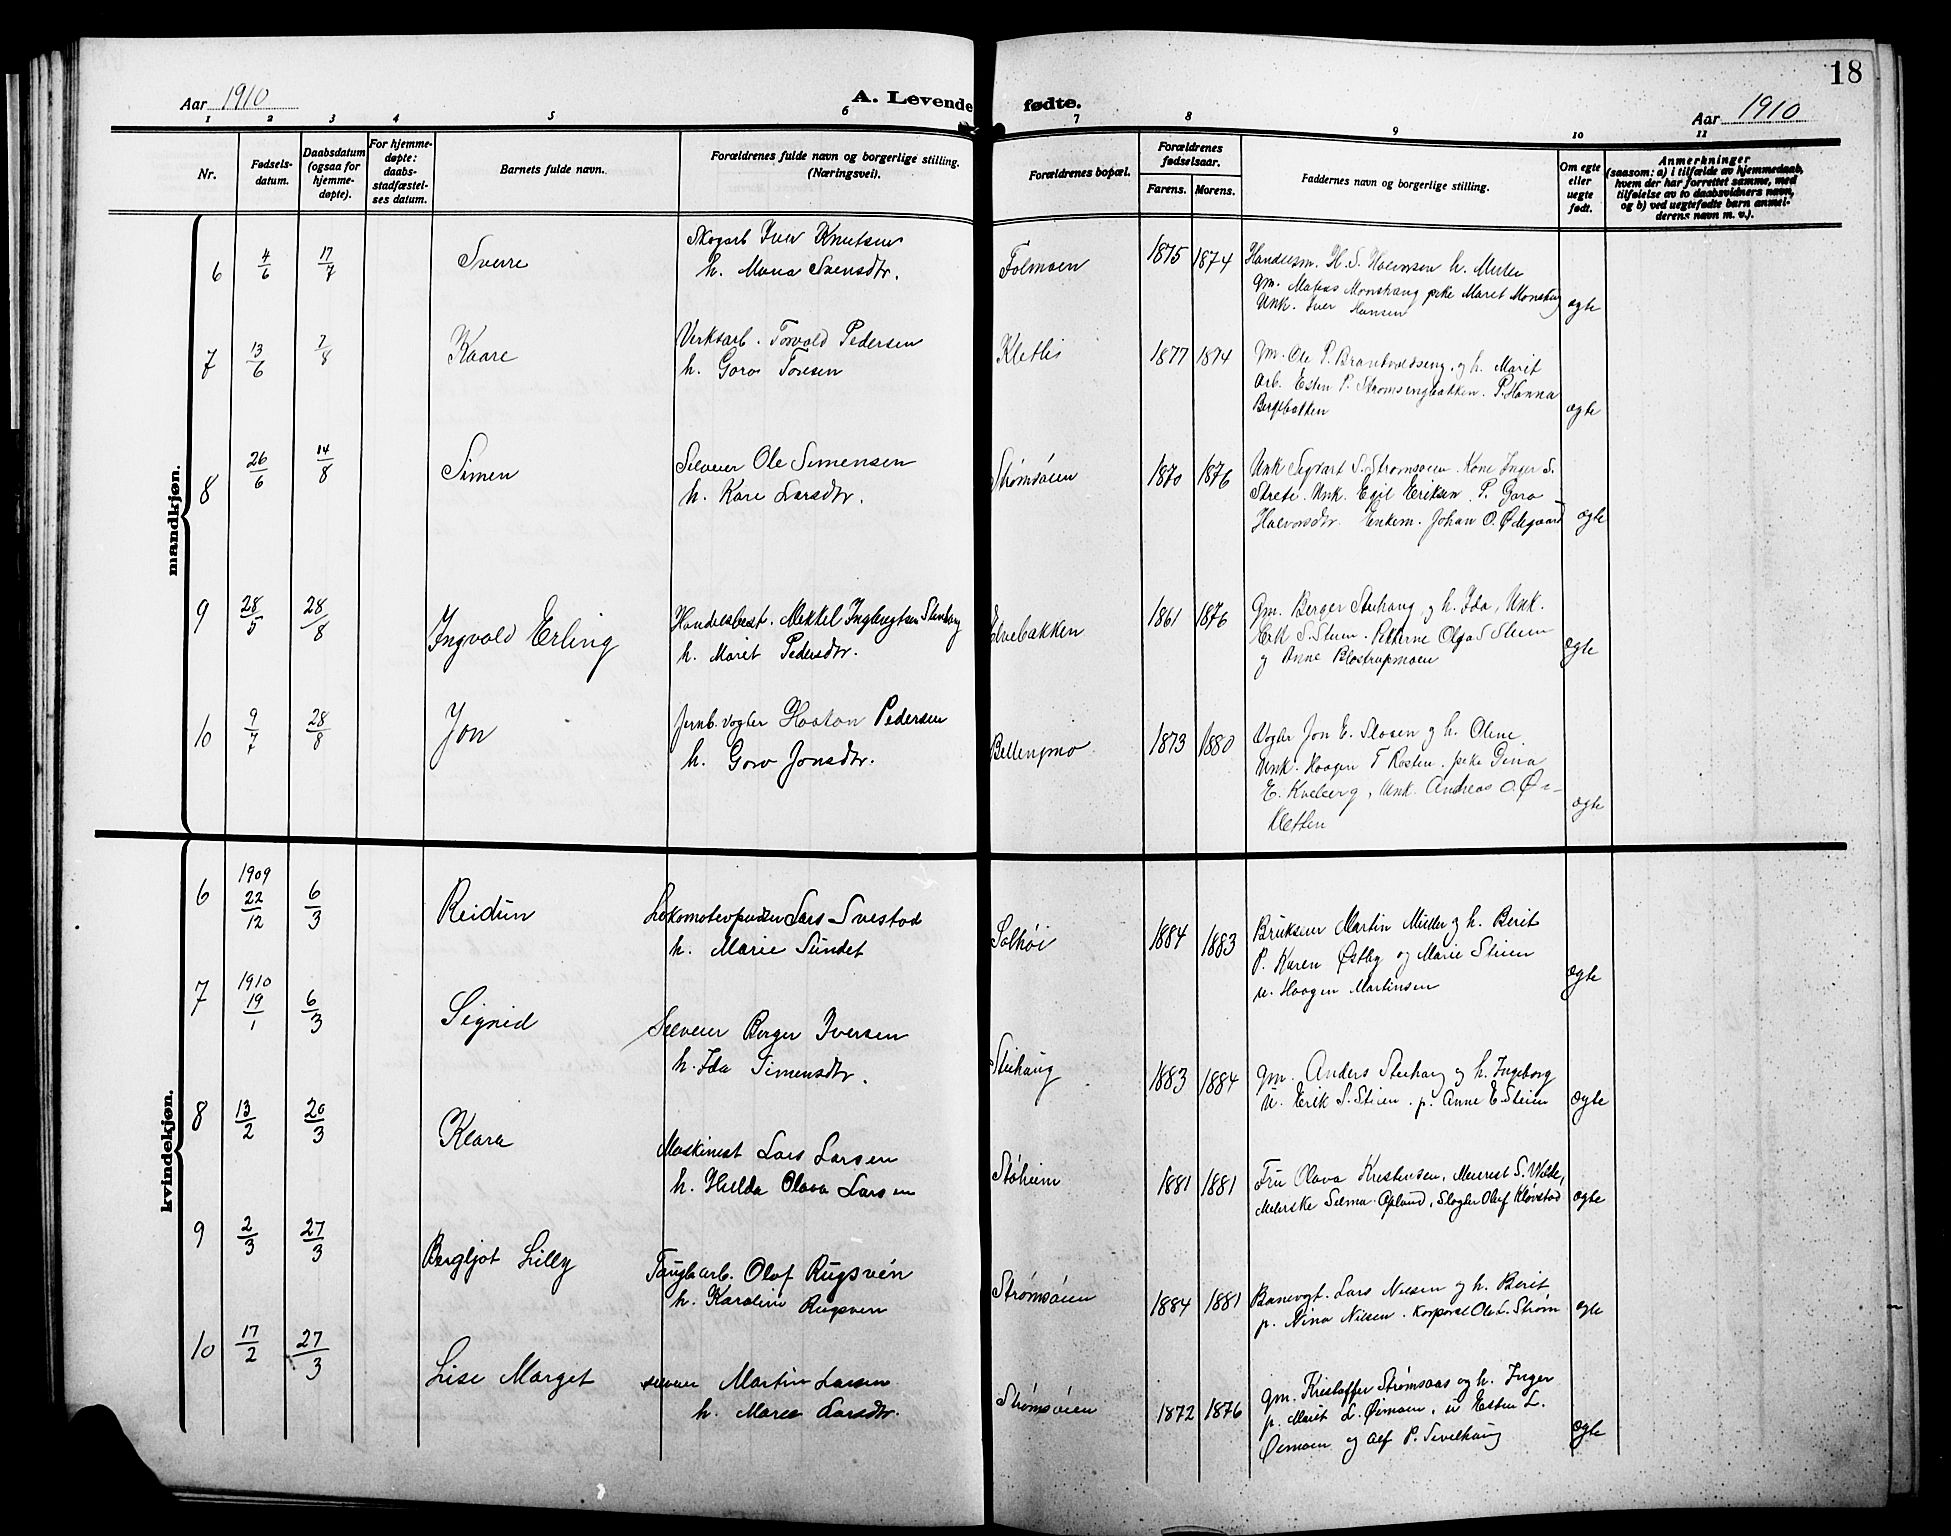 18
Aar 1910
A. Levende fødte.
Aar 1910
1 2 3 4 5 6 7 8 9 10 11
Nr.
Fødsels-
datum.
Daabsdatum
(ogsaa for
hjemme-
døpte).
For hjemme-
døpte:
daabs-
stadfæstel-
ses datum.
Barnets fulde navn.
Forældrenes fulde navn og borgerlige stilling.
(Næringsvei).
Forældrenes bopæl.
Forældrenes
fødselsaar.
Farens. Morens.
Faddernes navn og borgerlige stilling.
Om egte
eller
uegte
født.
Anmerkninger
(saasom: a) i tilfælde av hjemmedaab,
hvem der har forrettet samme, med
tilføielse av to daabsvidners navn,
og b) ved uegtefødte barn anmel-
derens navn m. v.).
mandkjøn.
6 4/6 17/7 Sverre
Skogarb Iver Knutsen
h. Maria Svensdtr.
Folmoen 1875 1874
Handelsm. H. S. Halvorsen h. Merle
gm. Matias Monshaug pike Maret Monshaug
Unk. Iver Hansen
egte
7 13/6 7/8 Kaare
Verksarb. Torvald Pedersen
h. Goro Toresen
Kletlis 1877 1874
gm. Ole P. Brandvoldseng. og h. Marit
arb. Esten P. Strømsengbakken. P. Hanna
Bergebakken
egte
8 26/6 14/8 Simen
Selveier Ole Simensen
h. Kari Larsdtr.
Strømsøien 1870 1876
Unk Sigvart S. Strømsøien. Kone Inger S.
Streti. Unk. Egil Eriksen. P. Goro
Halvorsdtr. Enkem. Johan O. Ødegaard
egte
9 28/5 28/8 Ingvald Erling
Handelsbest. Mekkel Ingbrigtsen Stenberg
h. Marit Pedersdtr.
Elvebakken 1861 1876
gm. Berger Stuhaug og h. Ida, Unk.
Erik S. Steien. Pikerne Olga S Steien
og Anne Blostrupmoen
egte
10 9/7 28/8 Jon
Jernb. vogter Haakon Pedersen
h. Goro Jonsdtr.
Bellengmo 1873 1880
Vogter Jon E. Slaaen og h. Oline
Unk. Haagen T Rosten. pike Dina
E. Kveberg, Unk. Andreas O. Ør-
kletten
egte
kvindekjøn.
6 1909 22/12 6/3 Reidun
Lokomotivpudser Lars Svestad
h. Marie Sundet
Solhøi 1884 1883
Brukseier Martin Müller og h. Berit
P. Karen Østby og Marie Steien
u. Haagen Martinsen
egte
7 1910 19/1 6/3 Signid
Selveier Berger Iversen
h. Ida Simensdtr.
Stuhaug 1883 1884
gm. Anders Stuhaug og h. Ingeborg
U. Erik S. Steien. p. Anne E. Steien
egte
8 13/2 20/3 Klara
Maskinist Lars Larsen
h. Hilda Olava Larsen
Støheim 1881 1881
Fru Olava Kristensen, Meierist S. Volde,
Meierske Selma Opland, Slagter Oluf Kløvstad
egte
9 2/3 27/3 Bergljot Lilly
Taugbarb. Olof Rugsvén
h. Karoline Rugsven
Strømsøien 1884 1881
Banevogt. Lars Nilsen og h. Berit
p. Nina Nilsen. Korporal Ole L. Strøm
egte
10 17/2 27/3 Lise Marget
selveier Martin Larsen
h. Marie Larsdtr.
Strømsøien 1872 1876
gm. Kristoffer Strømsaas og h. Inger
p. Marit L. Øiemoen, u Esten L.
Øiemoen og Alf P. Sivilhaug
egte